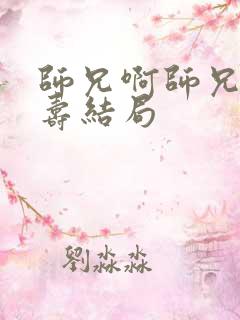 師兄啊師兄
壽結局
劉淼淼